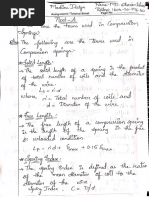 Machine Design
Part-A
the term used in Compression
Springs?
The following are the terms used in
Compression springs:-
Solid length:-
The solid length of a spring is the product
of total number of coils and the diameter
of the wire.
where, n' = Total number of coils, and
d = Diameter of the wire.
Free length:-
The free length of a compression spring
is the length of the spring in the
free or unloaded condition.
Spring Index:-
The Spring index is defined as the ratio
of the mean diameter of coil to the
diameter of the wire.
Spring index, C = D/d